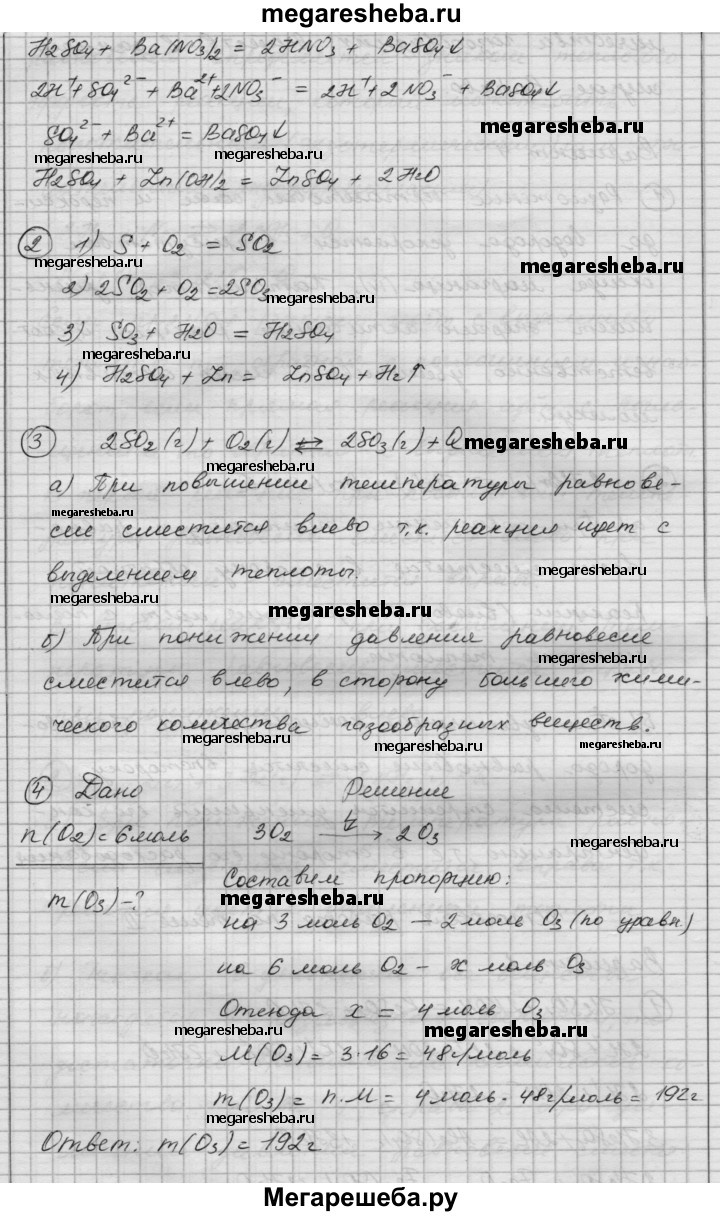 megaresheba.ru
H2SO4 + Ba(NO3)2 = 2HNO3 + BaSO4↓
2H⁺ + SO4²⁻ + Ba²⁺ + 2NO3⁻ = 2H⁺ + 2NO3⁻ + BaSO4↓
SO4²⁻ + Ba²⁺ = BaSO4↓
megaresheba.ru
megaresheba.ru megaresheba.ru
H2SO4 + Zn(OH)2 = ZnSO4 + 2H2O
2 1) S + O2 = SO2
megaresheba.ru megaresheba.ru
2) 2SO2 + O2 = 2SO3
megaresheba.ru
3) SO3 + H2O = H2SO4
megaresheba.ru
4) H2SO4 + Zn = ZnSO4 + H2↑
3 2SO2(г) + O2(г) ⇄ 2SO3(г) + Q
megaresheba.ru
megaresheba.ru
а) При повышении температуры равнове-
megaresheba.ru
сие сместится влево т.к. реакция идет с
выделением теплоты.
megaresheba.ru
megaresheba.ru
megaresheba.ru
б) При понижении давления равновесие
megaresheba.ru
сместится влево, в сторону большего хими-
ческого количества газообразных веществ.
megaresheba.ru megaresheba.ru megaresheba.ru
4 Дано Решение
n(O2) = 6 моль 3O2 → 2O3
megaresheba.ru
m(O3) - ? Составим пропорцию:
megaresheba.ru
на 3 моль O2 — 2 моль O3 (по уравн.)
на 6 моль O2 - x моль O3
Отсюда x = 4 моль O3
megaresheba.ru megaresheba.ru
M(O3) = 3·16 = 48 г/моль
m(O3) = n·M = 4 моль · 48 г/моль = 192 г
megaresheba.ru
Ответ: m(O3) = 192 г
Мегарешеба.ру